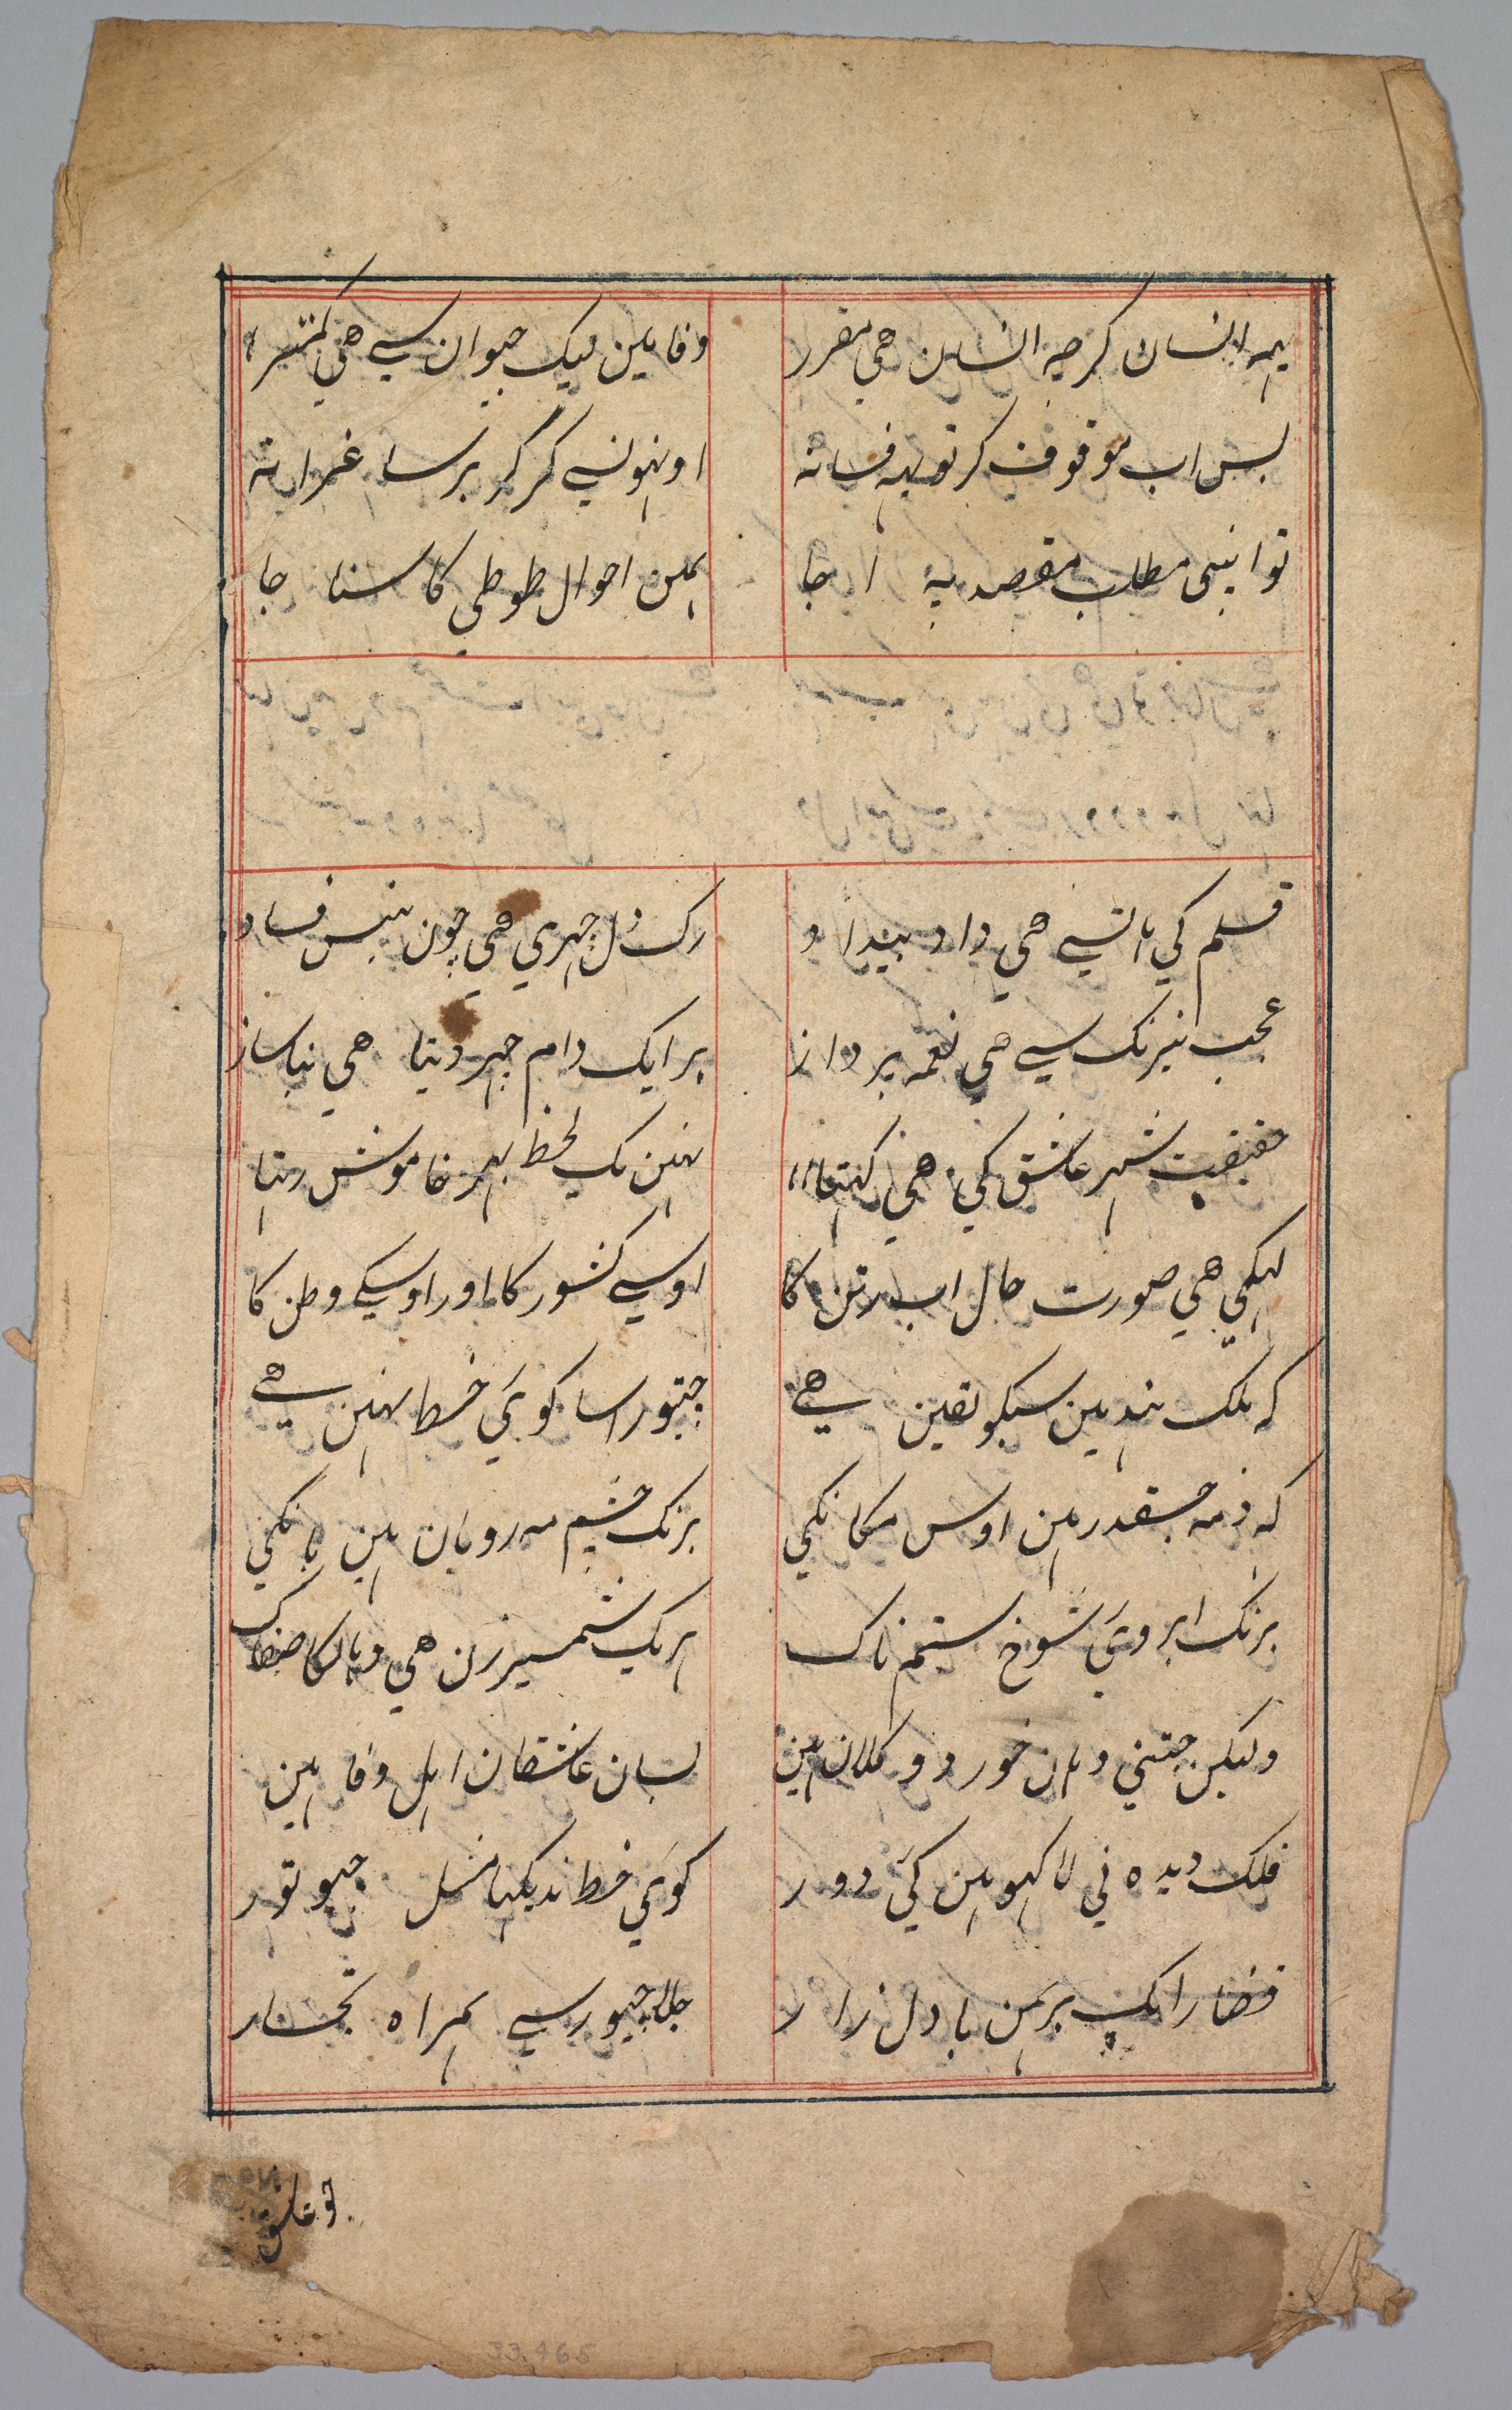 یہہ انسان کرچہ انسان هی مقرر وفا مین لیک حیوان سے هی کمتر
بس اب موقوف کر تو یہہ فسانہ اونہونسے کر کر برسا غمرانہ
تو اپنی مطلب مقصد پہ ا جا ہمین احوال طوطی کا سنا جا
قلم کی ہاتسے هی داد بیداد رک دل چهری هی چون نیس فساد
عجب نیرنک سے هی نغمہ پرداز ہر ایک دام چهردیتا هی نیا ساز
حقیقت شہر عاشق کی هی کہتا نہین یک لحظ بهر خاموش رہتا
لکهی هی صورت حال اب رتن کا اوسے کشور کا اور اوسکے وطن کا
کہ ملک ہند مین سبکو یقین هے چتور اسا کوئی خطا نہین هے
کہ ذمہ جسقدر ہین اوس مکانکی برنک چشم مہ رویان ہین بانکی
برنک ابروئی شوخ ستمناک ہریک شمسیر زن هی وہانکا ضحاک
ولیکن جتنی وہان خورد و کلان ہین بسان عاشقان اہل وفا ہین
فلک دیدہ نی لاکہو ہین کئی دور کوئی خط ندیکہا مثل چیوتور
قضارا یک برہمن با دل زار چلا چیور سے ہمراہ تجار